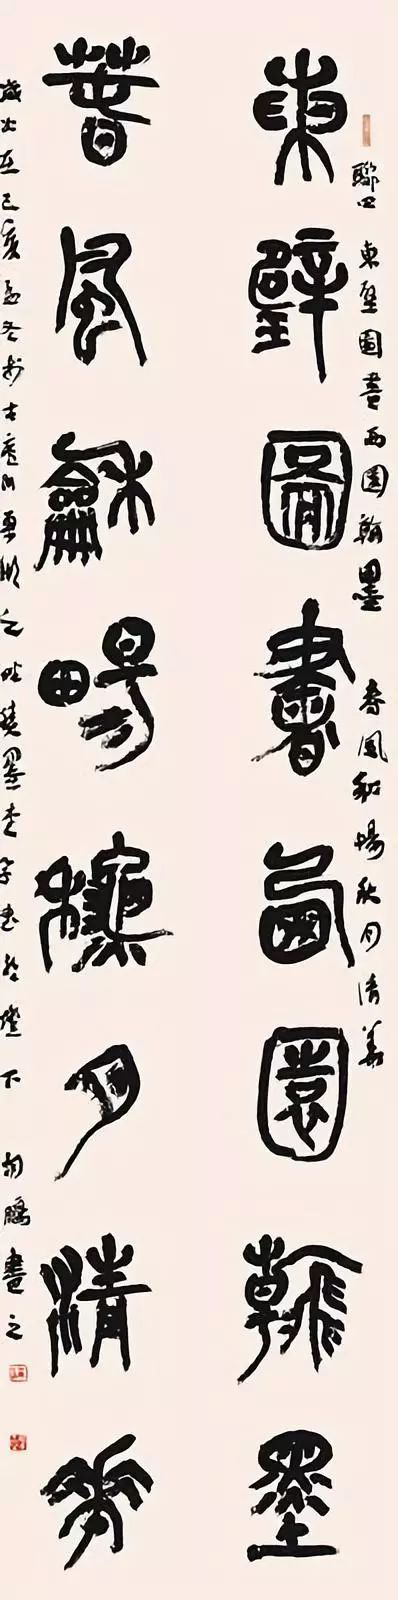 聯曰 東壁圖書西園翰墨 春風和暢秋月清華
東壁圖書西園翰墨
春風龢暢秋月清華
歲次在己亥孟冬於古 之時 墨 字書於燈下 鵬書之